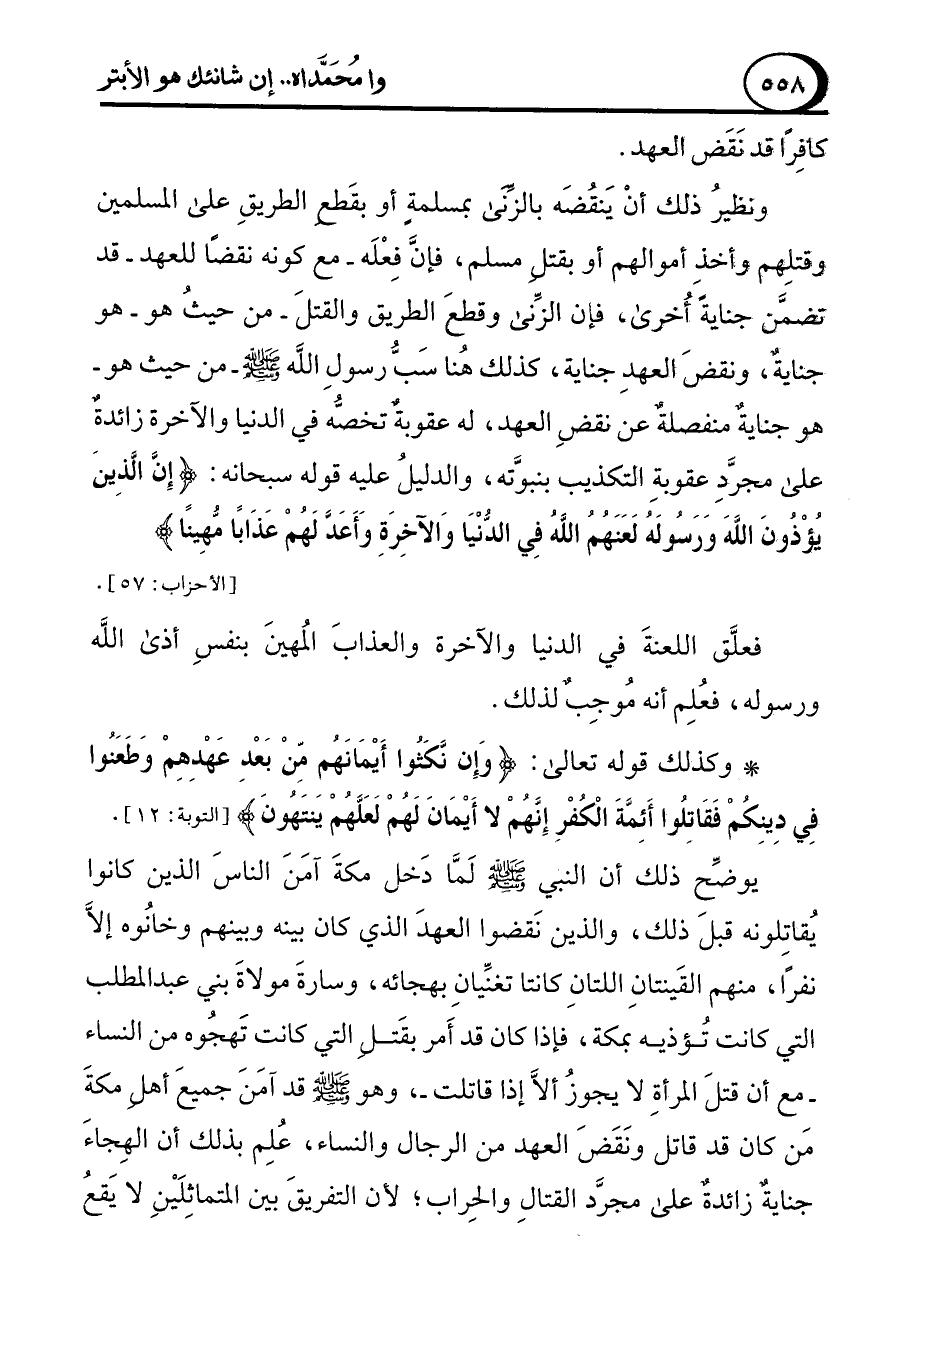 ٥٥٨
وا مُحَمَّداه.. إن شانئك هو الأبتر
كافِرًا قد نَقَض العهد.
ونظيرُ ذلك أنْ يَنقُضَه بالزِّنَىٰ بمسلمةٍ أو بقَطع الطريقِ علىٰ المسلمين
وقتلِهم وأخذِ أموالهم أو بقتلِ مسلم، فإنَّ فِعْلَه ـ مع كونه نقضًا للعهد ـ قد
تضمَّن جنايةً أُخرىٰ، فإن الزِّنىٰ وقطعَ الطريق والقتلَ ـ من حيثُ هو ـ هو
جنايةٌ، ونقضَ العهدِ جناية، كذلك هُنا سَبُّ رسولِ اللَّه ﷺ ـ من حيث هو ـ
هو جنايةٌ منفصلةٌ عن نقضِ العهد، له عقوبةٌ تخصُّه في الدنيا والآخرة زائدةٌ
علىٰ مجرَّدِ عقوبةِ التكذيب بنبوَّته، والدليلُ عليه قوله سبحانه: ﴿ إِنَّ الَّذِينَ
يُؤْذُونَ اللَّهَ وَرَسُولَهُ لَعَنَهُمُ اللَّهُ فِي الدُّنْيَا وَالآخِرَةِ وَأَعَدَّ لَهُمْ عَذَابًا مُّهِينًا ﴾
[الأحزاب: ٥٧].
فعلَّق اللعنةَ في الدنيا والآخرة والعذابَ المُهينَ بنفسِ أذىٰ اللَّه
ورسوله، فعُلِم أنه مُوجِبٌ لذلك.
* وكذلك قوله تعالىٰ: ﴿ وَإِن نَّكَثُوا أَيْمَانَهُم مِّنْ بَعْدِ عَهْدِهِمْ وَطَعَنُوا
فِي دِينِكُمْ فَقَاتِلُوا أَئِمَّةَ الْكُفْرِ إِنَّهُمْ لا أَيْمَانَ لَهُمْ لَعَلَّهُمْ يَنتَهُونَ ﴾ [التوبة: ١٢].
يوضِّح ذلك أن النبي ﷺ لَمَّا دَخل مكةَ آمَنَ الناسَ الذين كانوا
يُقاتِلونه قبلَ ذلك، والذين نَقَضوا العهدَ الذي كان بينه وبينهم وخانُوه إلاَّ
نفرًا، منهم القَينتانِ اللتانِ كانتا تغنِّيانِ بهجائه، وسارةَ مولاةَ بني عبدالمطلب
التي كانت تُـؤذيـه بمكة، فإذا كان قد أَمر بقَتـلِ التي كانت تَهجُوه من النساء
ـ مع أن قتلَ المرأةِ لا يجوزُ ألاَّ إذا قاتلت ـ، وهو ﷺ قد آمَنَ جميعَ أهلِ مكةَ
مَن كان قد قاتل ونَقَضَ العهد من الرجال والنساء، عُلِم بذلك أن الهجاءَ
جنايةٌ زائدةٌ علىٰ مجرَّد القتالِ والحِراب؛ لأن التفريقَ بين المتماثِلَيْنِ لا يَقعُ